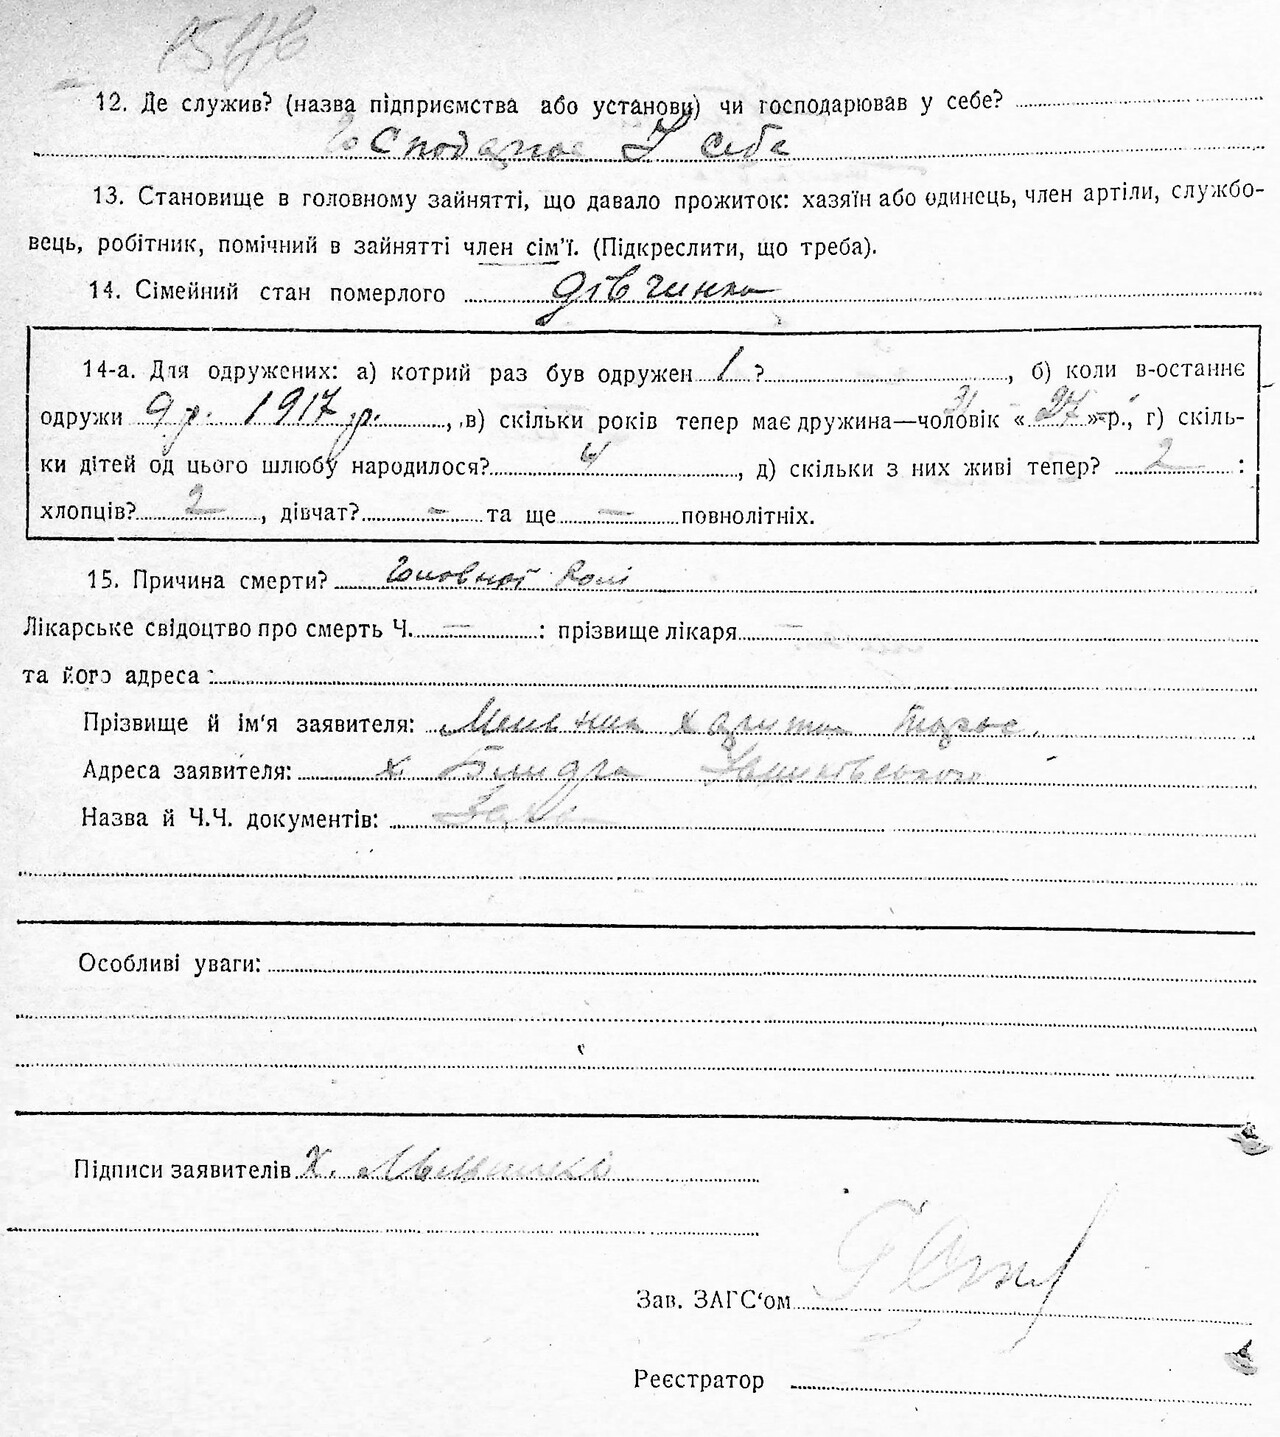 12. Де служив? (назва підприємства або установи) чи господарював у себе?
Господарює У себе
13. Становище в головному зайнятті, що давало прожиток: хазяїн або одинець, член артіли, службо-
вець, робітник, помічний в зайнятті член сім'ї. (Підкреслити, що треба).
14. Сімейний стан померлого дівчинка
14-а. Для одружених: а) котрий раз був одружен 1 ?, б) коли в-останнє
одружи 9 р. 1917 р., в) скільки років тепер має дружина—чоловік « 27 »-р., г) скіль-
ки дітей од цього шлюбу народилося? 4, д) скільки з них живі тепер? 2 :
хлопців? 2, дівчат? — та ще — повнолітніх.
15. Причина смерти? Головної болі
Лікарське свідоцтво про смерть Ч. — : прізвище лікаря —
та його адреса :
Прізвище й ім'я заявителя: Мельник Харитон
Адреса заявителя: х.
Назва й Ч.Ч. документів:
Особливі уваги:
Підписи заявителів Х. Мельник
Зав. ЗАГС'ом
Реєстратор